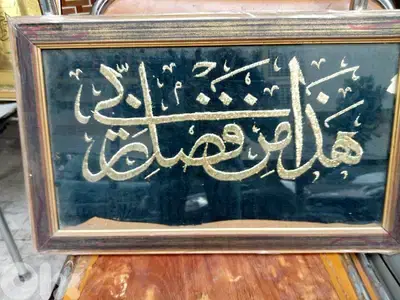 هذا من فضل ربي
OLX